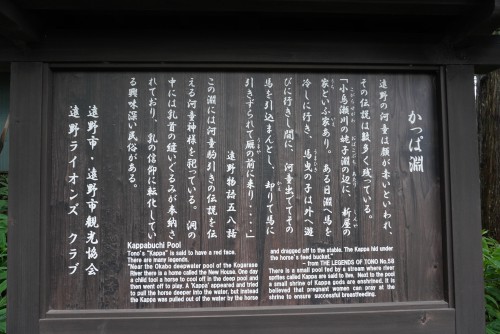 かっぱ淵
遠野の河童は顔が赤いといわれ、
その伝説は数多く残っている。
「小烏瀬川の姥子淵の辺に、新屋の
家といふ家あり。ある日淵へ馬を
冷しに行き、馬曳の子は外へ遊
びに行きし間に、河童出でてその
馬を引込まんとし、却りて馬に
引きずられて厩の前に来り・・・」
遠野物語五八話
この淵には河童駒引きの伝説を伝
える河童神様を祀っている。洞の
中には乳首の縫いぐるみが奉納さ
れており、乳の信仰に転化してい
る興味深い民俗がある。
遠野市・遠野市観光協会
遠野ライオンズ クラブ
Kappabuchi Pool
Tono's "Kappa" is said to have a red face.
There are many legends.
"Near the Okabo deepwater pool of the Kogarase
River there is a home called the New House. One day
a child took a horse to cool off in the deep pool and
then went off to play. A 'Kappa' appeared and tried
to pull the horse deeper into the water, but instead
the Kappa was pulled out of the water by the horse
and dragged off to the stable. The Kappa hid under
the horse's feed bucket."
– from THE LEGENDS OF TONO No.58
There is a small pool fed by a stream where river
sprites called Kappa are said to live. Next to the pool
a small shrine of Kappa gods are enshrined. It is
believed that pregnant women can pray at the
shrine to ensure successful breastfeeding.